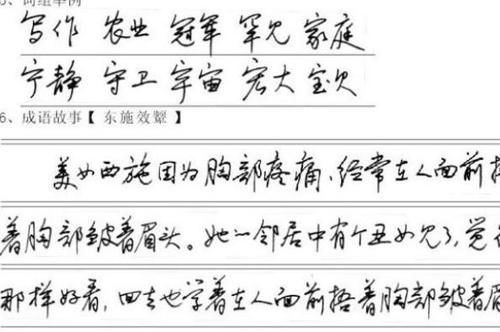 5、词组举例
写作 农业 冠军 罕见 家庭
宁静 守卫 宇宙 宏大 宝贝
6、成语故事【 东施效颦 】
美女西施因为胸部疼痛,经常在人面前捂
着胸部皱着眉头。她一邻居中有个丑女见了,觉得
那样好看,回去也学着在人面前捂着胸部皱着眉